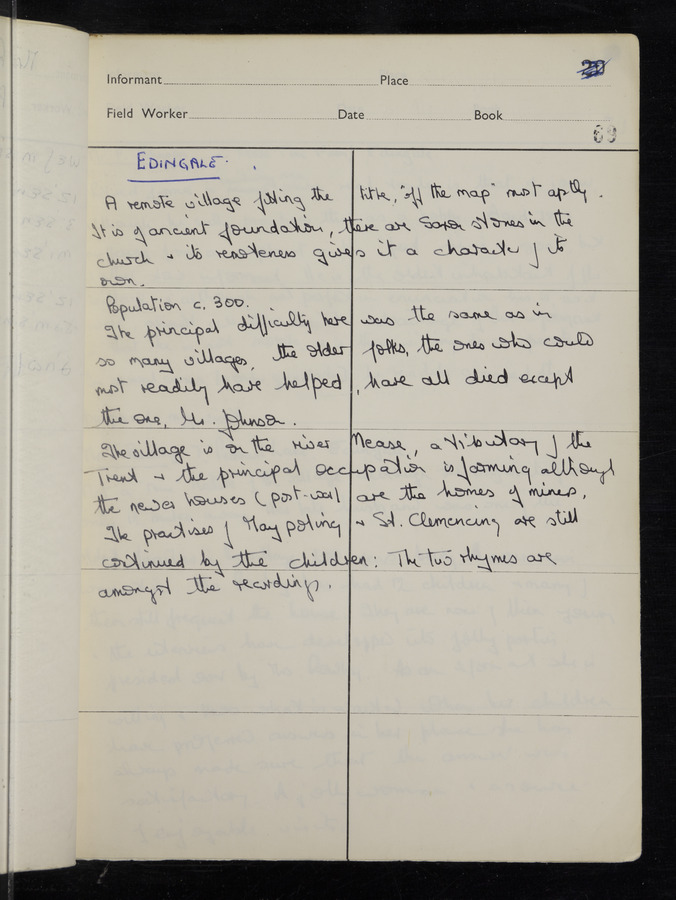 Informant Place 20
Field Worker Date Book
69
EDINGALE.
A remote village fitting the title, "off the map" most aptly.
It is of ancient foundation, there are Saxon stones in the
church + its remoteness gives it a character of its
own.
Population c. 300.
The principal difficulty here was the same as in
so many villages, the older folks, the ones who could
most readily have helped, have all died except
the one, Mr. Johnson.
The village is on the river Mease, a tributary of the
Trent + the principal occupation is farming although
the newer houses (post-war) are the homes of miners.
The practises of May poling + St. Clemencing are still
continued by the children: The two rhymes are
amongst the recordings.